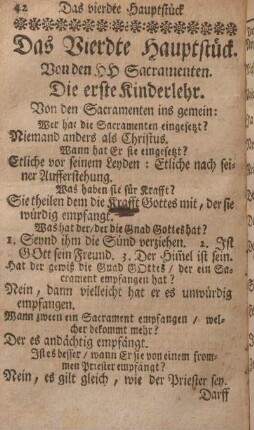 42 Das vierdte Hauptstück
Das Vierdte Hauptstück.
Von den HH Sacramenten.
Die erste Kinderlehr.
Von den Sacramenten ins gemein:
Wer hat die Sacramenten eingesetzt?
Niemand anders als Christus.
Wann hat Er sie eingesetzt?
Etliche vor seinem Leyden: Etliche nach sei-
ner Aufferstehung.
Was haben sie für Krafft?
Sie theilen dem die Krafft Gottes mit, der sie
würdig empfangt.
Was hat der / der die Gnad Gottes hat?
1. Seynd ihm die Sünd verziehen. 2. Ist
GOtt sein Freund. 3. Der Him̃el ist sein.
Hat der gewiß die Gnad GOttes / der ein Sa-
crament empfangen hat?
Nein, dann vielleicht hat er es unwürdig
empfangen.
Wann zween ein Sacrament empfangen / wel-
cher bekommt mehr?
Der es andächtig empfängt.
Ist es besser / wann Er sie von einem from-
men Priester empfängt?
Nein, es gilt gleich, wie der Priester sey.
Darff